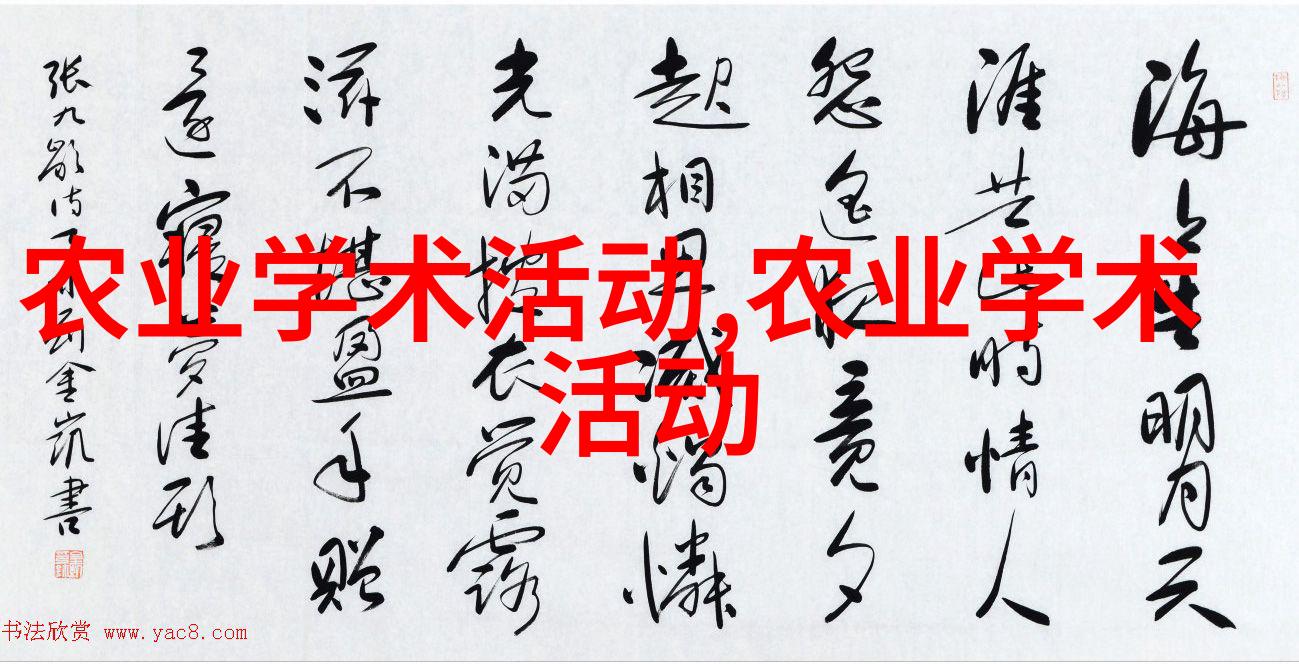 海上生明月天
涯共此時情人
怨遥夜竟夕
起相思滅燭憐
光满披衣覺露
滋不堪盈手贈
還寝夢佳期
張九齡詩 金凯書
农业学术活动,农业学术
活动
书法欣赏 www.yac8.com